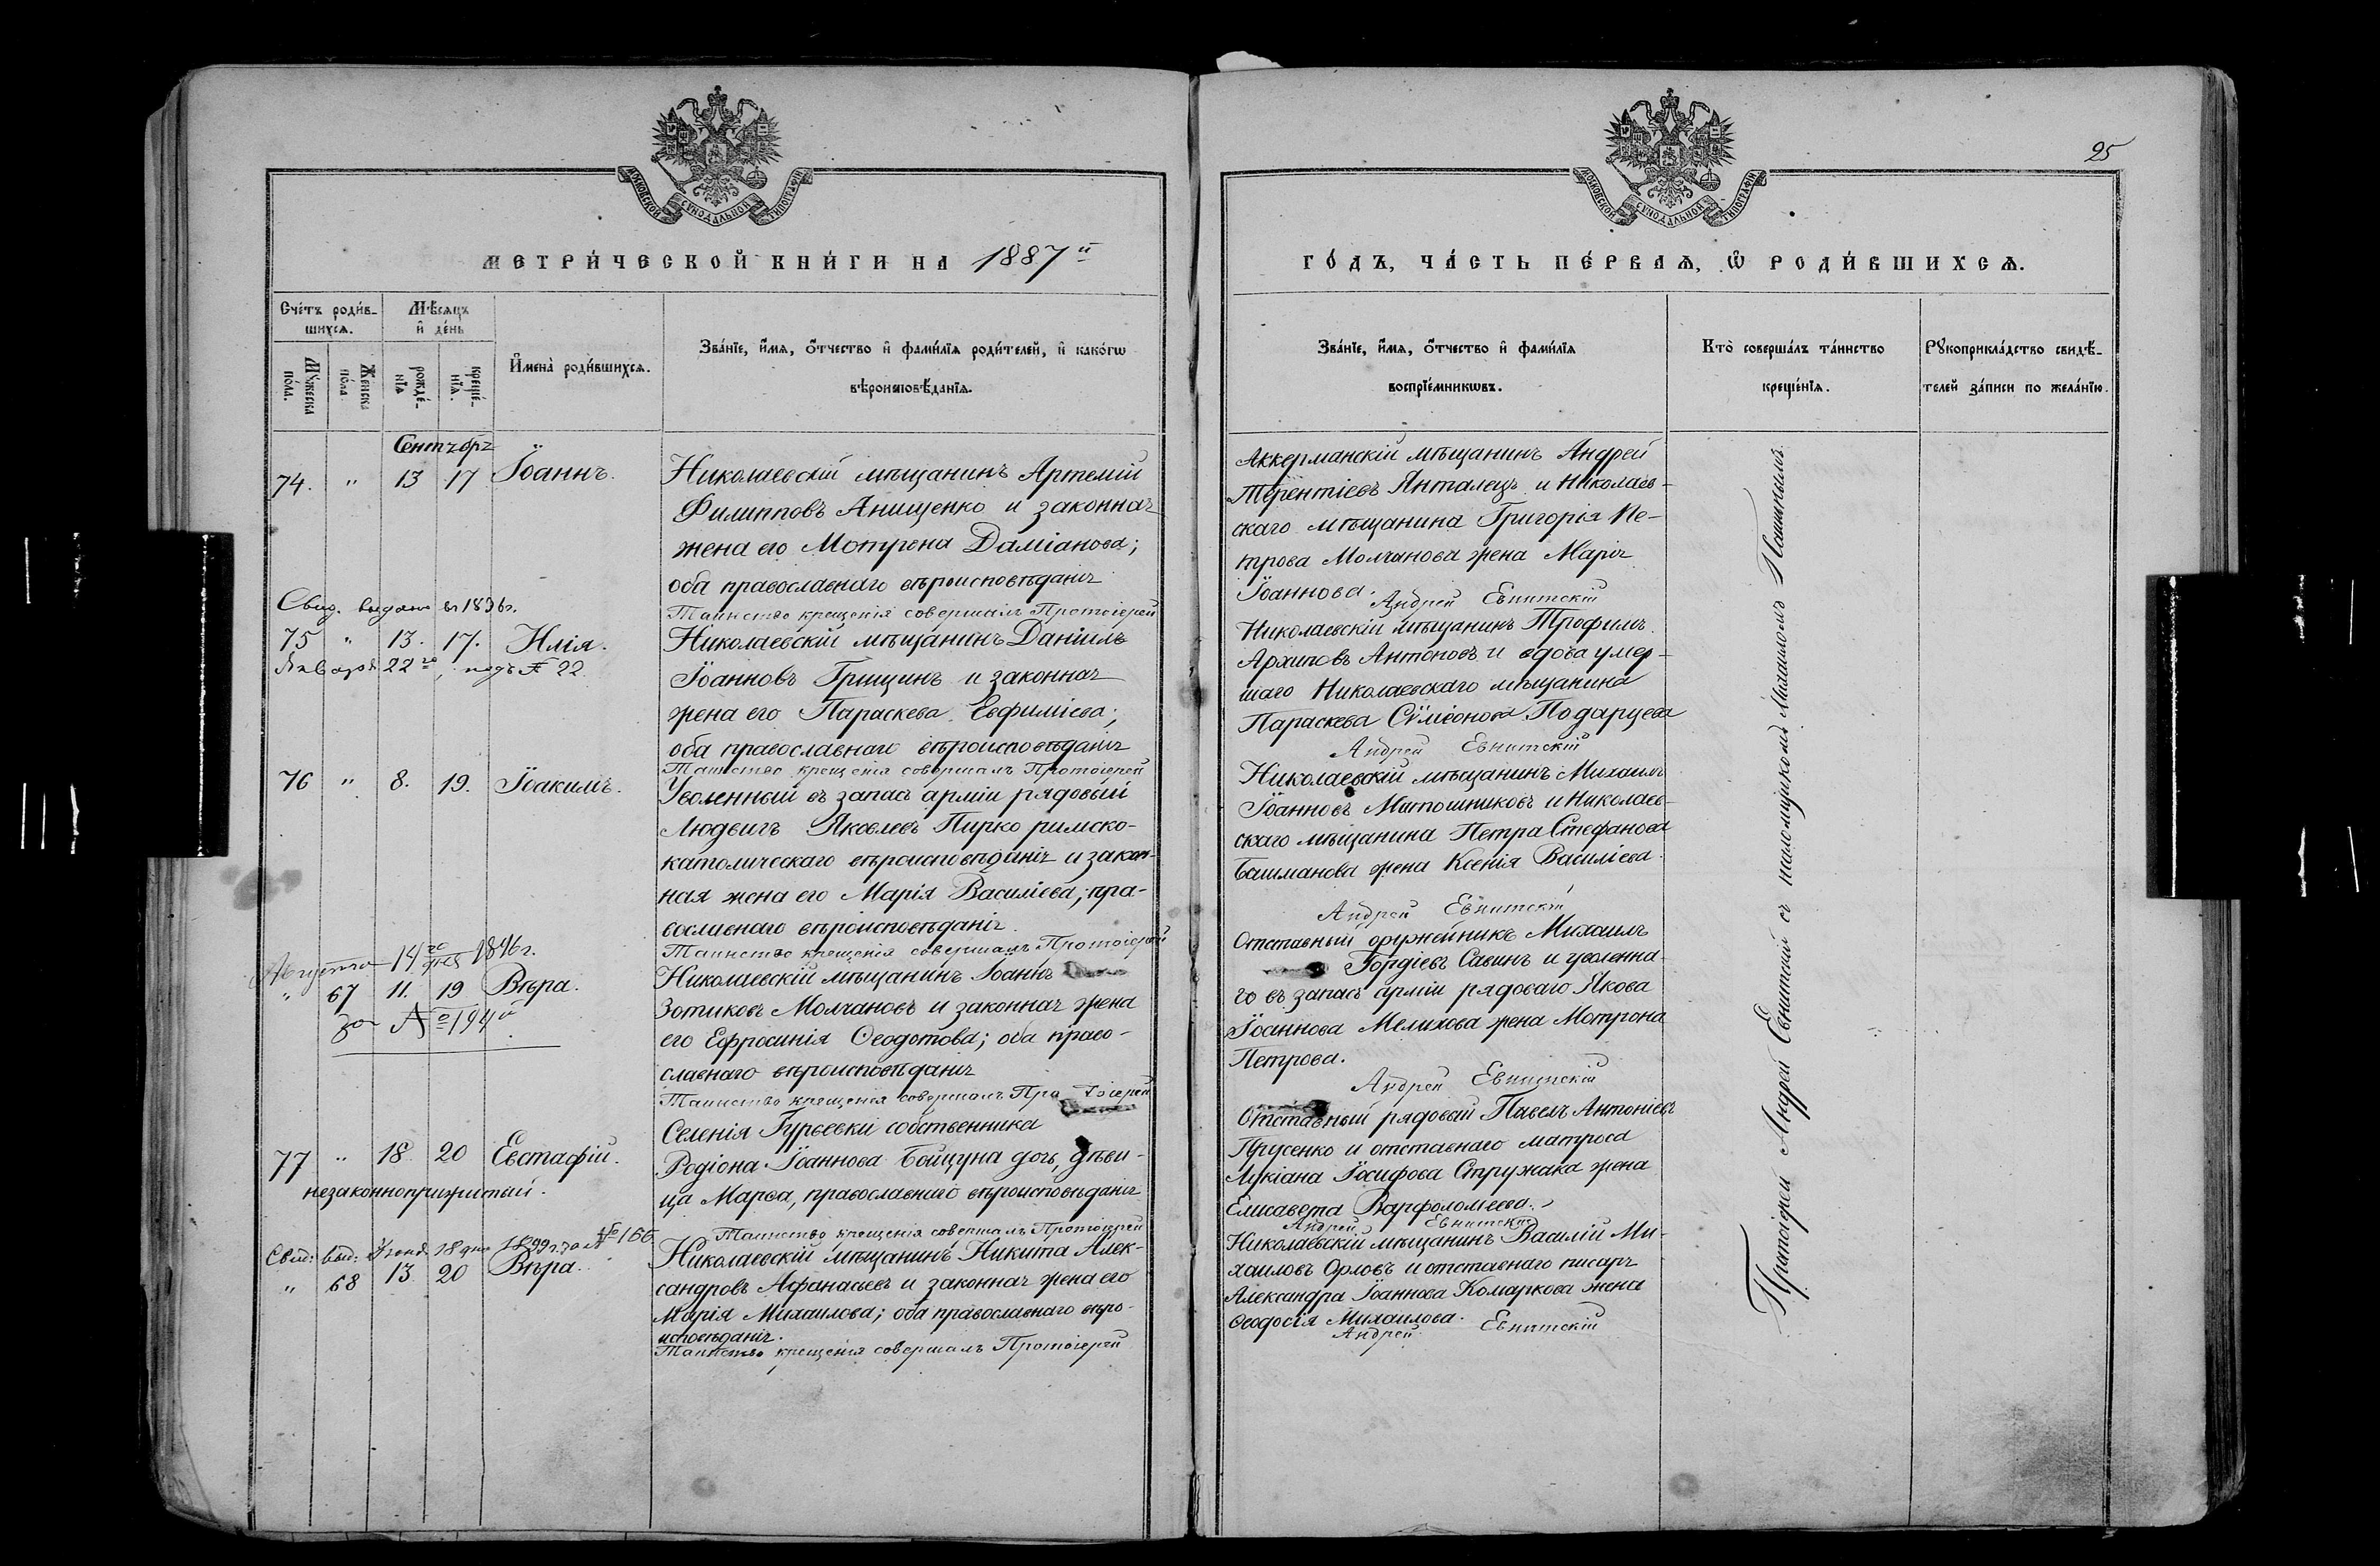 МОСКОВСКОЙ СУНОДАЛЬНОЙ ТИПОГРАФІИ
МЕТРИ́ЧЕСКОЙ КНИ́ГИ НА 1887 й
Сче́тъ роди́в-
шихсѧ.
Мѣ́сѧцъ
и҆ де́нь
Мꙋ́жеска
по́ла.
Же́нска
по́ла
рожде́-
нїѧ
креще́-
нїѧ.
И҆мена̀ роди́вшихсѧ.
Зва́нїе, и҆́мѧ, ѻ҆́тчество и҆ фами́лїѧ роди́телей, и҆ како́гѡ
вѣроисповѣ́данїѧ.
Сентябрь
74. " 13 17 Іоаннъ.
Николаевскій мѣщанинъ Артемій
Филипповъ Анищенко и законная
жена его Мотрена Даміанова;
оба православнаго вѣроисповѣданія
Таинство крещенія совершалъ Протоіерей
Свид. выдано въ 1896 г.
75 " 13. 17. Илія.
Января 22 го, подъ № 22.
Николаевскій мѣщанинъ Даніилъ
Іоанновъ Грищинъ и законная
жена его Параскева Евфиміева;
оба православнаго вѣроисповѣданія
Таинство крещенія совершалъ Протоіерей
76 " 8. 19. Іоакимъ.
Уволенный въ запасъ арміи рядовый
Людвигъ Яковлевъ Пирко римско-
католическаго вѣроисповѣданія и закон-
ная жена его Марія Василіева, пра-
вославнаго вѣроисповѣданія.
Таинство крещенія совершалъ Протоіерей
Августа 14 го дня 1896 г.
" 67 11. 19 Вѣра.
за № 194 й
Николаевскій мѣщанинъ Іоаннъ
Зотиковъ Молчановъ и законная жена
его Ефросинія Ѳеодотова; оба право-
славнаго вѣроисповѣданія
Таинство крещенія совершалъ Протоіерей
77 " 18 20 Евстафій.
незаконноприжитый.
Селенія Гурьевки собственника
Родіона Іоаннова Бойцуна дочь, дѣви-
ца Марѳа, православнаго вѣроисповѣданія
Таинство крещенія совершалъ Протоіерей
Свид: выд: 18 дня 1899 г. за № 166
" 68 13 20 Вѣра.
Николаевскій мѣщанинъ Никита Алек-
сандровъ Афанасьевъ и законная жена его
Марія Михаилова; оба православнаго вѣро-
исповѣданія.
Таинство крещенія совершалъ Протоіерей
25
МОСКОВСКОЙ СУНОДАЛЬНОЙ ТИПОГРАФІИ
ГО́ДЪ, ЧА́СТЬ ПЕ́РВАѦ, Ѡ҆ РОДИ́ВШИХСѦ.
Зва́нїе, и҆́мѧ, ѻ҆́тчество и҆ фами́лїѧ
воспрїе́мникѡвъ.
Кто̀ соверша́лъ та́инство
креще́нїѧ.
Рꙋкоприкла́дство свидѣ́-
телей за́писи по жела́нїю.
Аккерманскій мѣщанинъ Андрей
Терентіевъ Анталецъ и Николаев-
скаго мѣщанина Григорія Пе-
трова Молчанова жена Марія
Іоаннова.
Андрей Евнитскій
Николаевскій мѣщанинъ Трофимъ
Архиповъ Антоновъ и вдова умер-
шаго Николаевскаго мѣщанина
Параскева Сѵмеонова Подарцева
Андрей Евнитскій
Николаевскій мѣщанинъ Михаилъ
Іоанновъ Митошниковъ и Николаев-
скаго мѣщанина Петра Стефанова
Башманова жена Ксенія Василіева.
Андрей Евнитскій
Отставный оружейникъ Михаилъ
Гордіевъ Савинъ и уволенна-
го въ запасъ арміи рядоваго Якова
Іоаннова Мелихова жена Мотрона
Петрова.
Андрей Евнитскій
Отставный рядовый Павелъ Антоніевъ
Прусенко и отставнаго матроса
Лукіана Іосифова Стружака жена
Елисавета Варфоломеева.
Андрей Евнитскій
Николаевскій мѣщанинъ Василій Ми-
хаиловъ Орловъ и отставнаго писаря
Александра Іоаннова Комаркова жена
Ѳеодосія Михаилова.
Андрей Евнитскій
Протоіерей Андрей Евнитскій съ псаломщикомъ Михаиломъ